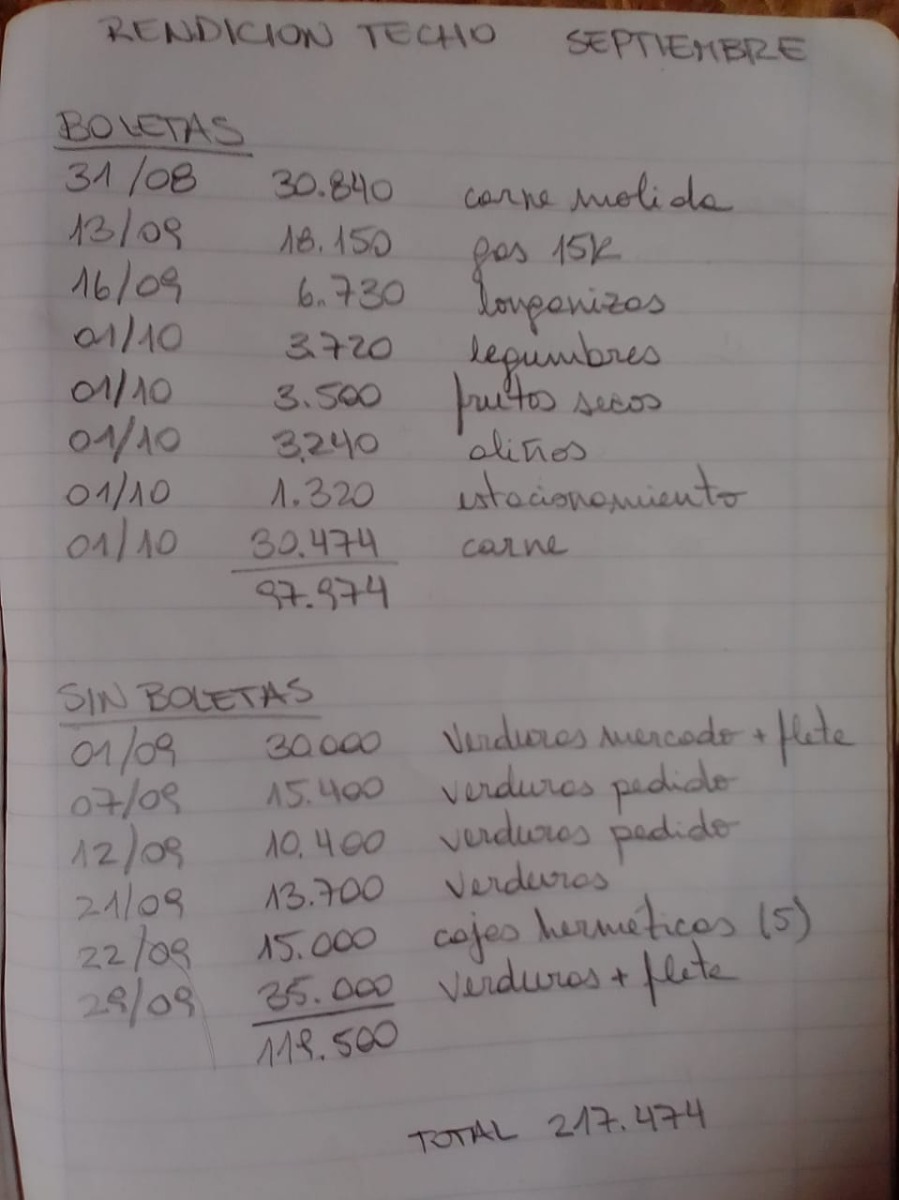 RENDICION TECHO SEPTIEMBRE
BOLETAS
31/08 30.840 carne molida
13/09 18.150 gas 15K
16/09 6.730 longanizas
01/10 3.720 legumbres
01/10 3.500 frutos secos
01/10 3.240 aliños
01/10 1.320 estacionamiento
01/10 30.474 carne
97.974
SIN BOLETAS
01/09 30.000 Verduras mercado + flete
07/09 15.400 verduras pedido
12/09 10.400 verduras pedido
21/09 13.700 verduras
22/09 15.000 cajas herméticas (5)
29/09 35.000 verduras + flete
119.500
TOTAL 217.474